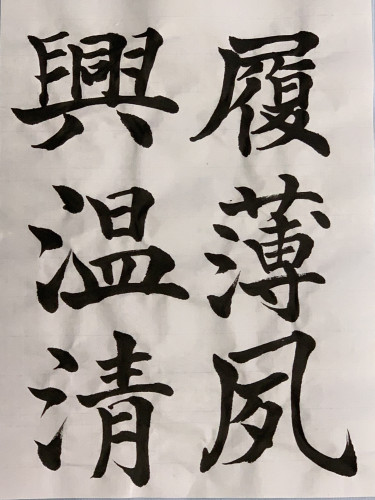 履薄夙
興温清